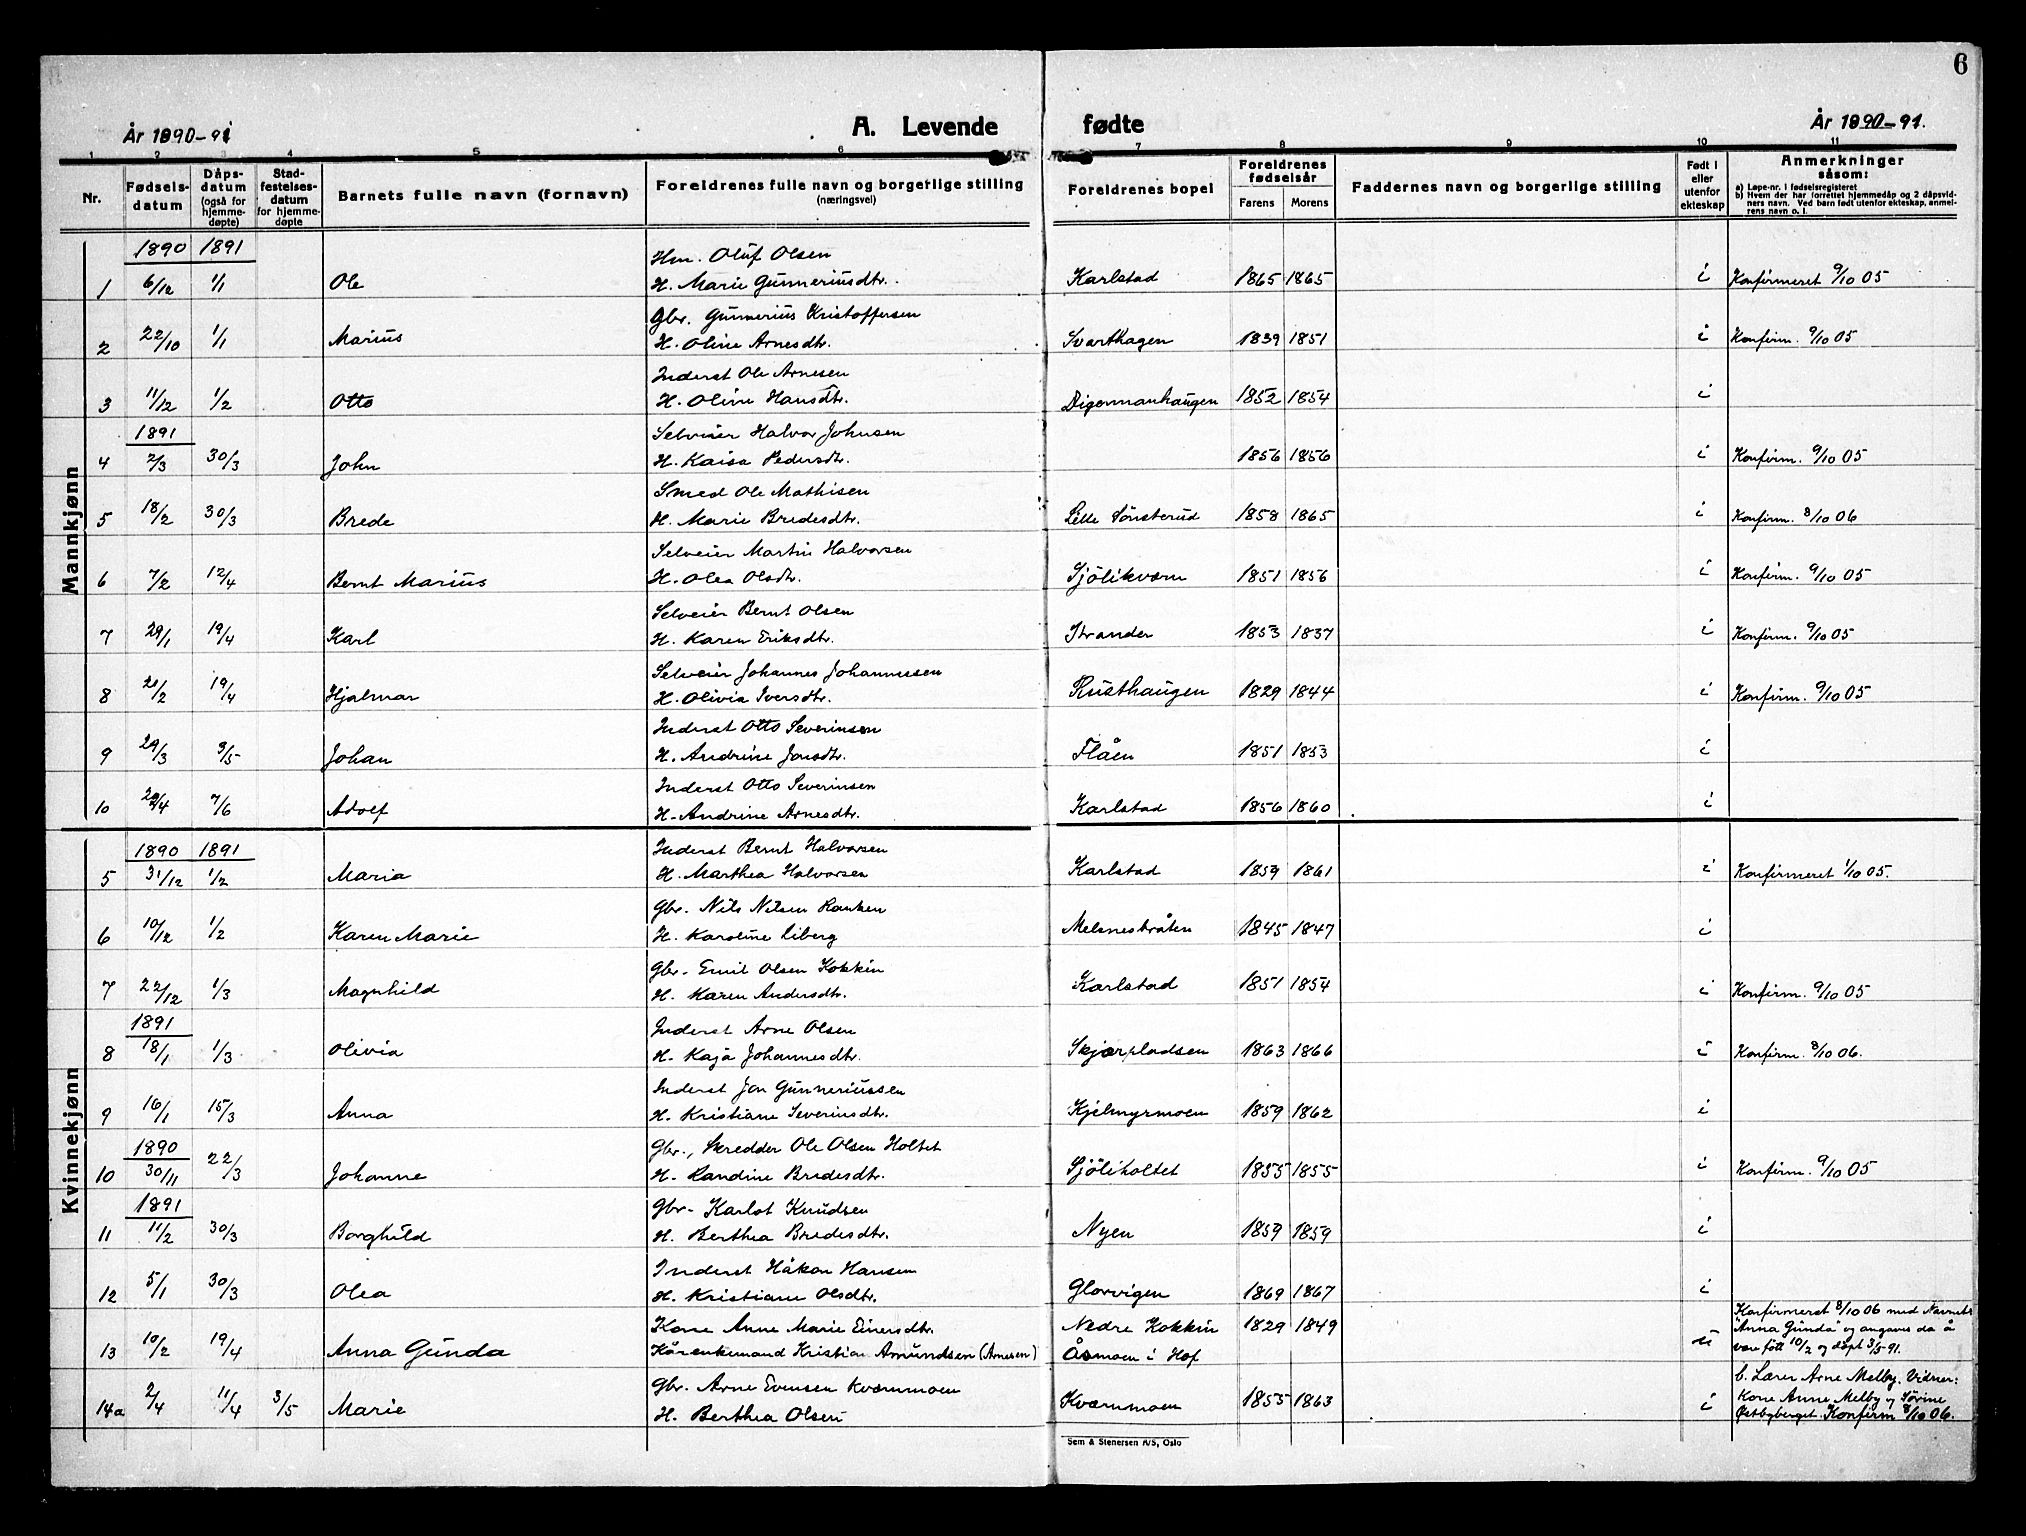 6
År 1890-91
A. Levende
fødte
År 1890-91.
1 2 3 4 5 6 7 8 9 10 11
Nr.
Fødselsdatum
Dåpsdatum (også for hjemmedøpte)
Stadfestelsesdatum for hjemmedøpte
Barnets fulle navn (fornavn)
Foreldrenes fulle navn og borgerlige stilling (næringsvei)
Foreldrenes bopel
Foreldrenes fødselsår
Farens Morens
Faddernes navn og borgerlige stilling
Født i eller utenfor ekteskap
Anmerkninger såsom:
a) Løpe-nr. i fødselsregisteret
b) Hvem der har forrettet hjemmedåp og 2 dåpsvidners navn. Ved barn født utenfor ekteskap, anmelrens navn o. l.
Mannkjønn
1890 1891
Hm. Oluf Olsen
1 6/12 1/1 Ole H. Marie Gunneriusdtr. Karlstad 1865 1865 i Konfirmeret 9/10 05
Gbr. Gunnerius Kristoffersen
2 22/10 1/1 Marius H. Oline Arnesdtr. Svarthagen 1839 1851 i Konfirm. 9/10 05
Inderst Ole Arnesen
3 11/12 1/2 Otto H. Oline Hansdtr. Digermanhaugen 1852 1854 i
1891
Selveier Halvor Johnsen
4 2/3 30/3 John H. Kaisa Pedersdtr. 1856 1856 i Konfirm. 9/10 05
Smed Ole Mathisen
5 18/2 30/3 Brede H. Marie Bredesdtr. Lille Sönsterud 1858 1865 i Konfirm. 8/10 06
Selveier Martin Halvorsen
6 7/2 12/4 Bernt Marius H. Olea Olsdtr. Sjölikværn 1851 1856 i Konfirm. 9/10 05
Selveier Bernt Olsen
7 29/1 19/4 Karl H. Karen Eriksdtr. Strander 1853 1837 i Konfirm. 9/10 05
Selveier Johannes Johannessen
8 21/2 19/4 Hjalmar H. Olivia Iversdtr. Rusthaugen 1829 1844 i Konfirm. 9/10 05
Inderst Otto Severinsen
9 29/3 3/5 Johan H. Andrine Jonsdtr. Flåen 1851 1853 i
Inderst Otto Severinsen
10 20/4 7/6 Adolf H. Andrine Arnesdtr. Karlstad 1856 1860 i
Kvinnekjønn
1890 1891
Inderst Bernt Halvorsen
5 31/12 1/2 Maria H. Marthea Halvorsen Karlstad 1859 1861 i Konfirmeret 1/10 05.
Gbr. Nils Nilsen Ranken
6 10/12 1/2 Karen Marie H. Karoline Liberg Melsnesbråten 1845 1847 i
Gbr. Emil Olsen Kokkin
7 22/12 1/3 Magnhild H. Karen Andersdtr. Karlstad 1851 1854 i Konfirm. 9/10 05
1891
Inderst Arne Olsen
8 18/1 1/3 Olivia H. Kaja Johannesdtr. Skjærpladsen 1863 1866 i Konfirm. 8/10 06.
Inderst Jon Gunneriussen
9 16/1 15/3 Anna H. Kristiane Severinsdtr. Kjelmyrmoen 1859 1862 i
1890
Gbr., Skredder Ole Olsen Holtet
10 30/11 22/3 Johanne H. Randine Bredesdtr. Sjöliholtet 1855 1855 i Konfirm. 9/10 05
1891
Gbr. Karlot Knudsen
11 11/2 30/3 Borghild H. Berthea Bredesdtr. Nyen 1859 1859 i
Inderst Håkon Hansen
12 5/1 30/3 Olea H. Kristiane Olsdtr. Glorvigen 1869 1867 i
Konfirmeret 8/10 06 med Navnet
Kone Anne Marie Einersdtr. Nedre Kokkin 1829 1849 "Anna Gunda" og angaves da å
13 10/2 19/4 Anna Gunda Kårenkemand Kristian Amundsen (Arnesen) Åsmoen i Hof u være fött 10/2 og döpt 3/5 91.
b. Lærer Arne Melby. Vidner:
Gbr. Arne Evensen Kværnmoen Kone Anne Melby og Sörine
14a 2/4 11/4 3/5 Marie H. Berthea Olsen Kværnmoen 1855 1863 i Östbyberget. Konfirm 8/10 06.
Sem & Stenersen A/S, Oslo